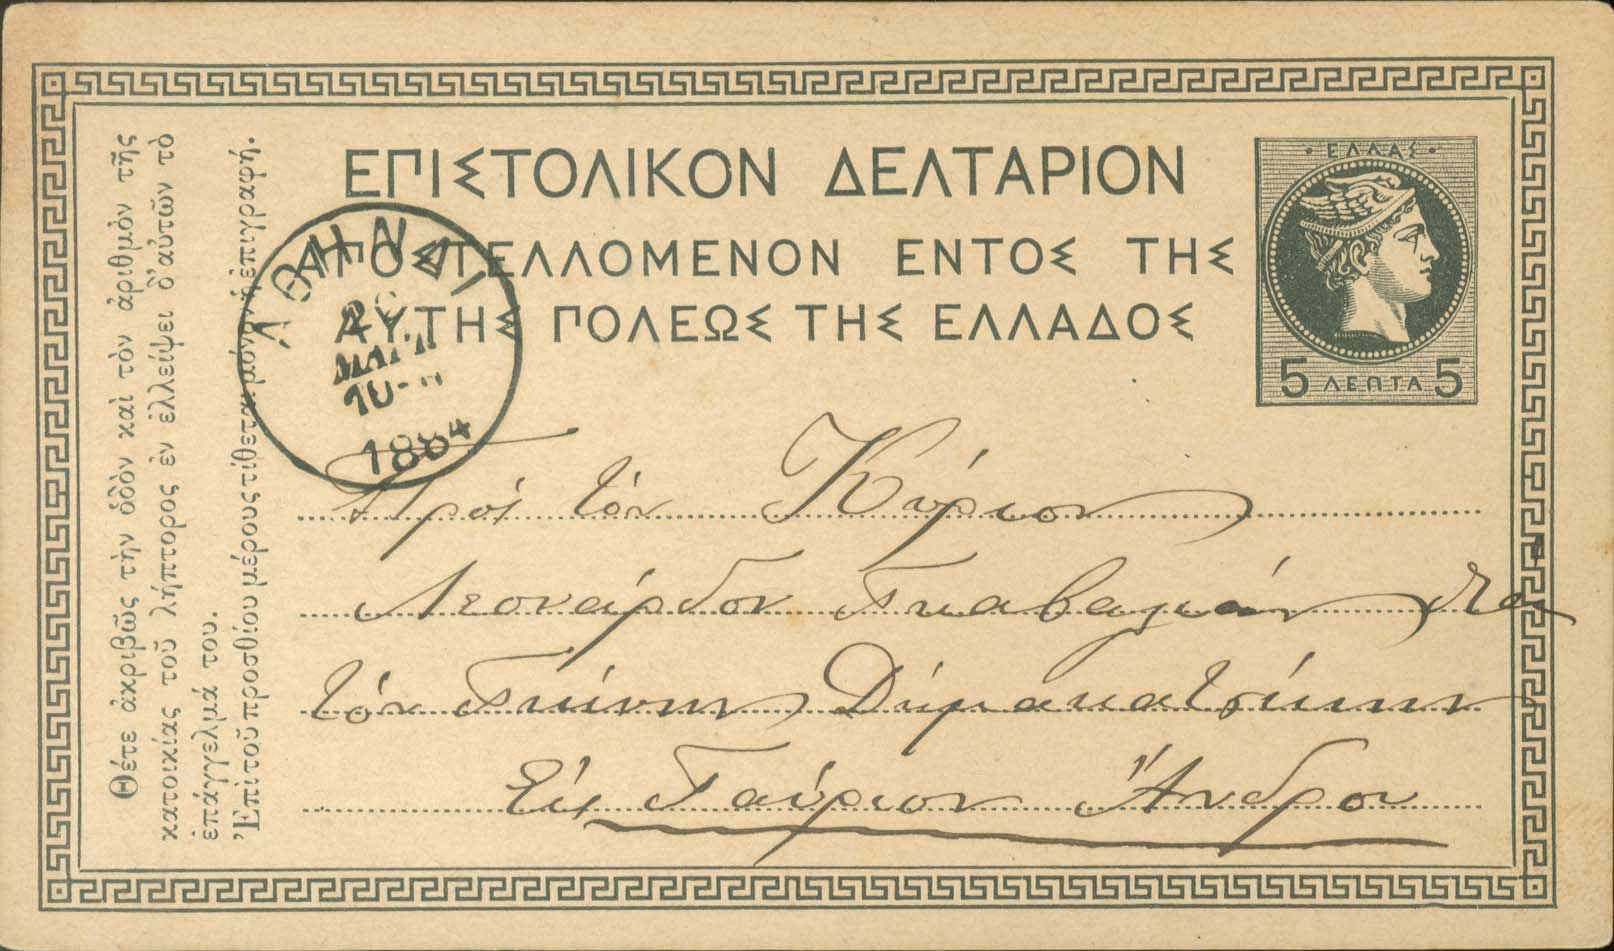 ΕΠΙΣΤΟΛΙΚΟΝ ΔΕΛΤΑΡΙΟΝ
ΑΠΟΣΤΕΛΛΟΜΕΝΟΝ ΕΝΤΟΣ ΤΗΣ
ΑΥΤΗΣ ΠΟΛΕΩΣ ΤΗΣ ΕΛΛΑΔΟΣ
ΕΛΛΑΣ
5 ΛΕΠΤΑ 5
ΑΘΗΝΑΙ
ΜΑΡΤ
1884
Πρὸς τὸν Κύριον
Λεονάρδον
τὸν
Εἰς Γαύριον Ἄνδρου
Θέτε ἀκριβῶς τὴν ὁδὸν καὶ τὸν ἀριθμὸν τῆς
κατοικίας τοῦ λήπτορος ἐν ἐλλείψει δ' αὐτῶν τὸ
ἐπάγγελμά του.
Ἐπὶ τοῦ προσθίου μέρους τίθεται μόνον ἡ ἐπιγραφή.